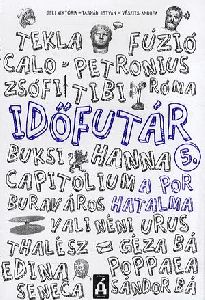 TEKLA FÚZIÓ
CALO-PETRONIUS
ZSÓFI TIBI RÓMA
IDŐFUTÁR
BUKSI HANNA 5.
CAPITOLIUM A POR
BURAVÁROS HATALMA
VALI NÉNI URUS
THALÉSZ GÉZA BÁ
EDINA POPPAEA
SENECA SÁNDOR BÁ